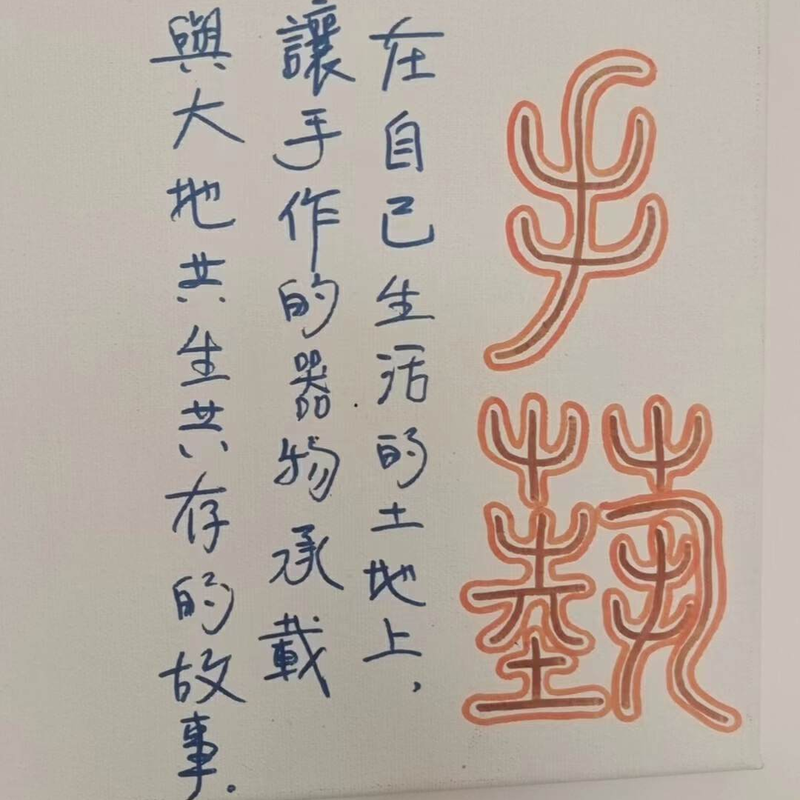 手藝
在自己生活的土地上，
讓手作的器物承載
與大地共生共存的故事。